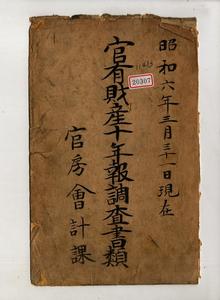 昭和六年三月三十一日現在
官有財産十年報調査書類
官房會計課
20307